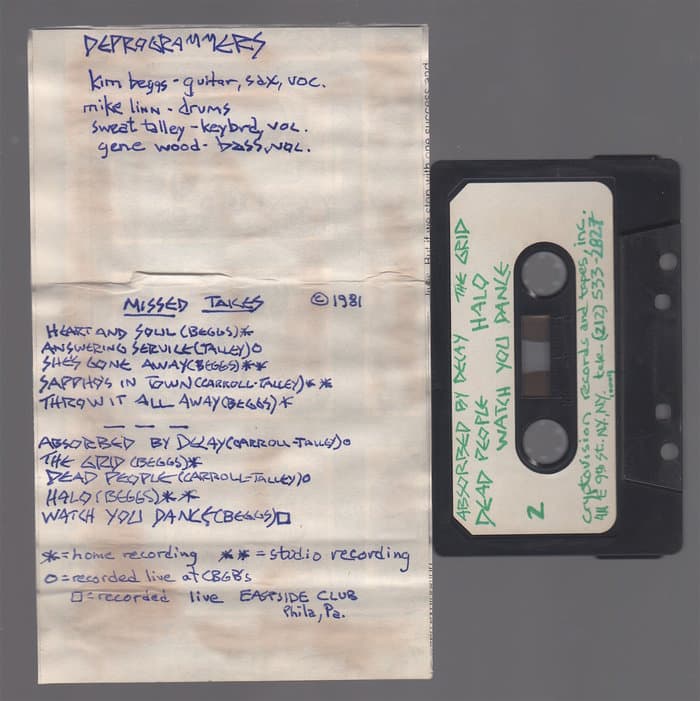 DEPROGRAMMERS
kim beggs - guitar, sax, voc.
mike linn - drums
sweat talley - keybrd, vol.
gene wood - bass, vol.
MISSED TAKES ©1981
HEART AND SOUL (BEGGS)*
ANSWERING SERVICE (TALLEY)O
SHE'S GONE AWAY (BEGGS)**
SAPPHO'S IN TOWN (CARROLL-TALLEY)**
THROW IT ALL AWAY (BEGGS)*
— — —
ABSORBED BY DECAY (CARROLL-TALLEY)O
THE GRID (BEGGS)*
DEAD PEOPLE (CARROLL-TALLEY)O
HALO (BEGGS)**
WATCH YOU DANCE (BEGGS)□
*=home recording **=studio recording
O=recorded live at CBGB's
□=recorded live EASTSIDE CLUB
Phila, Pa.
But if we stop with one success and
ABSORBED BY DECAY THE GRID
DEAD PEOPLE HALO
WATCH YOU DANCE
2
cryptovision records and tapes, inc.
E 9th St. NY, NY. tele. (212) 533-2827